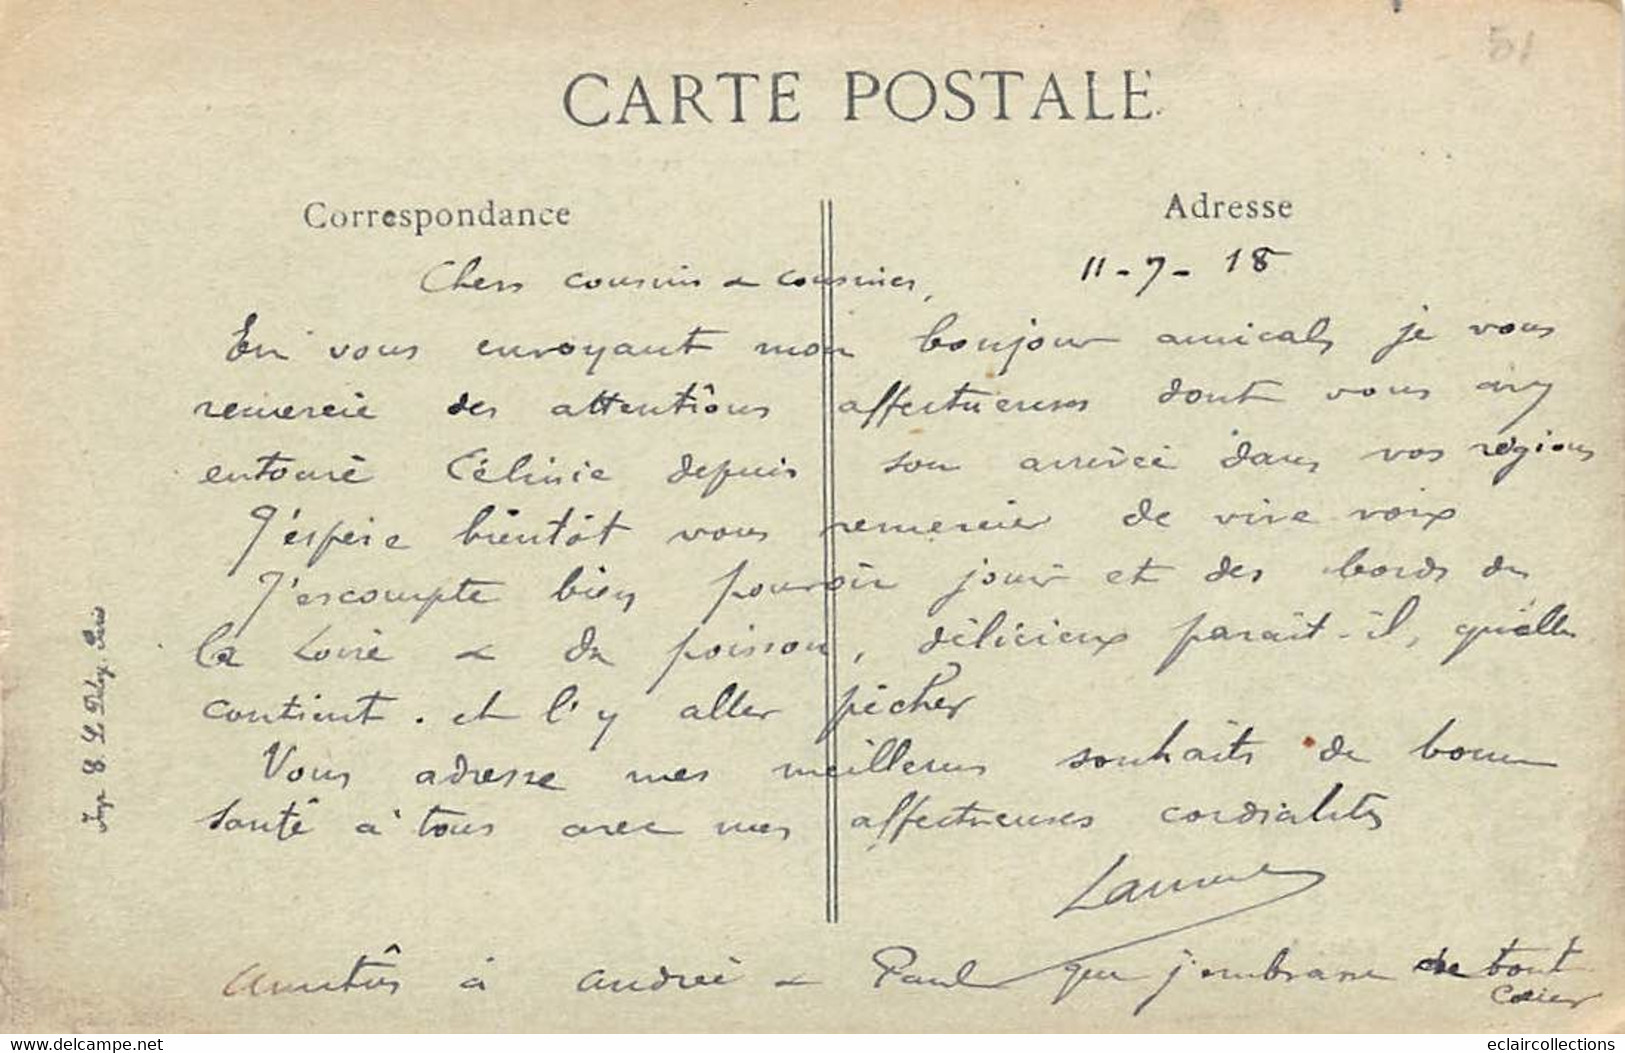 51
CARTE POSTALE
Correspondance
Adresse
Chers cousins & cousines,
11-7-18
En vous envoyant mon bonjour amicals je vous
remercie des attentions affectueuses dont vous avez
entouré Célinie depuis son arrivée dans vos régions
J'espère bientôt vous remercier de vive voix
J'escompte bien pouvoir jouir et des bords de
la Loire & du poisson, délicieux parait-il, qu'elle
contient. et l'y aller pêcher
Vous adresse mes meilleurs souhaits de bonne
santé à tous avec mes affectueuses cordialités
Amitiés à Andrée & Paul que j'embrasse de tout
coeur
Imp. E. Le Deley, Paris
eclaircollections